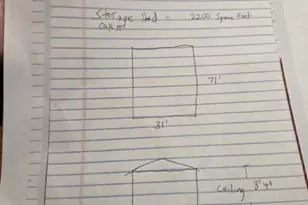 Storage Shed - 2200 Square Feet
71'
31'
Ceiling 8' 4"